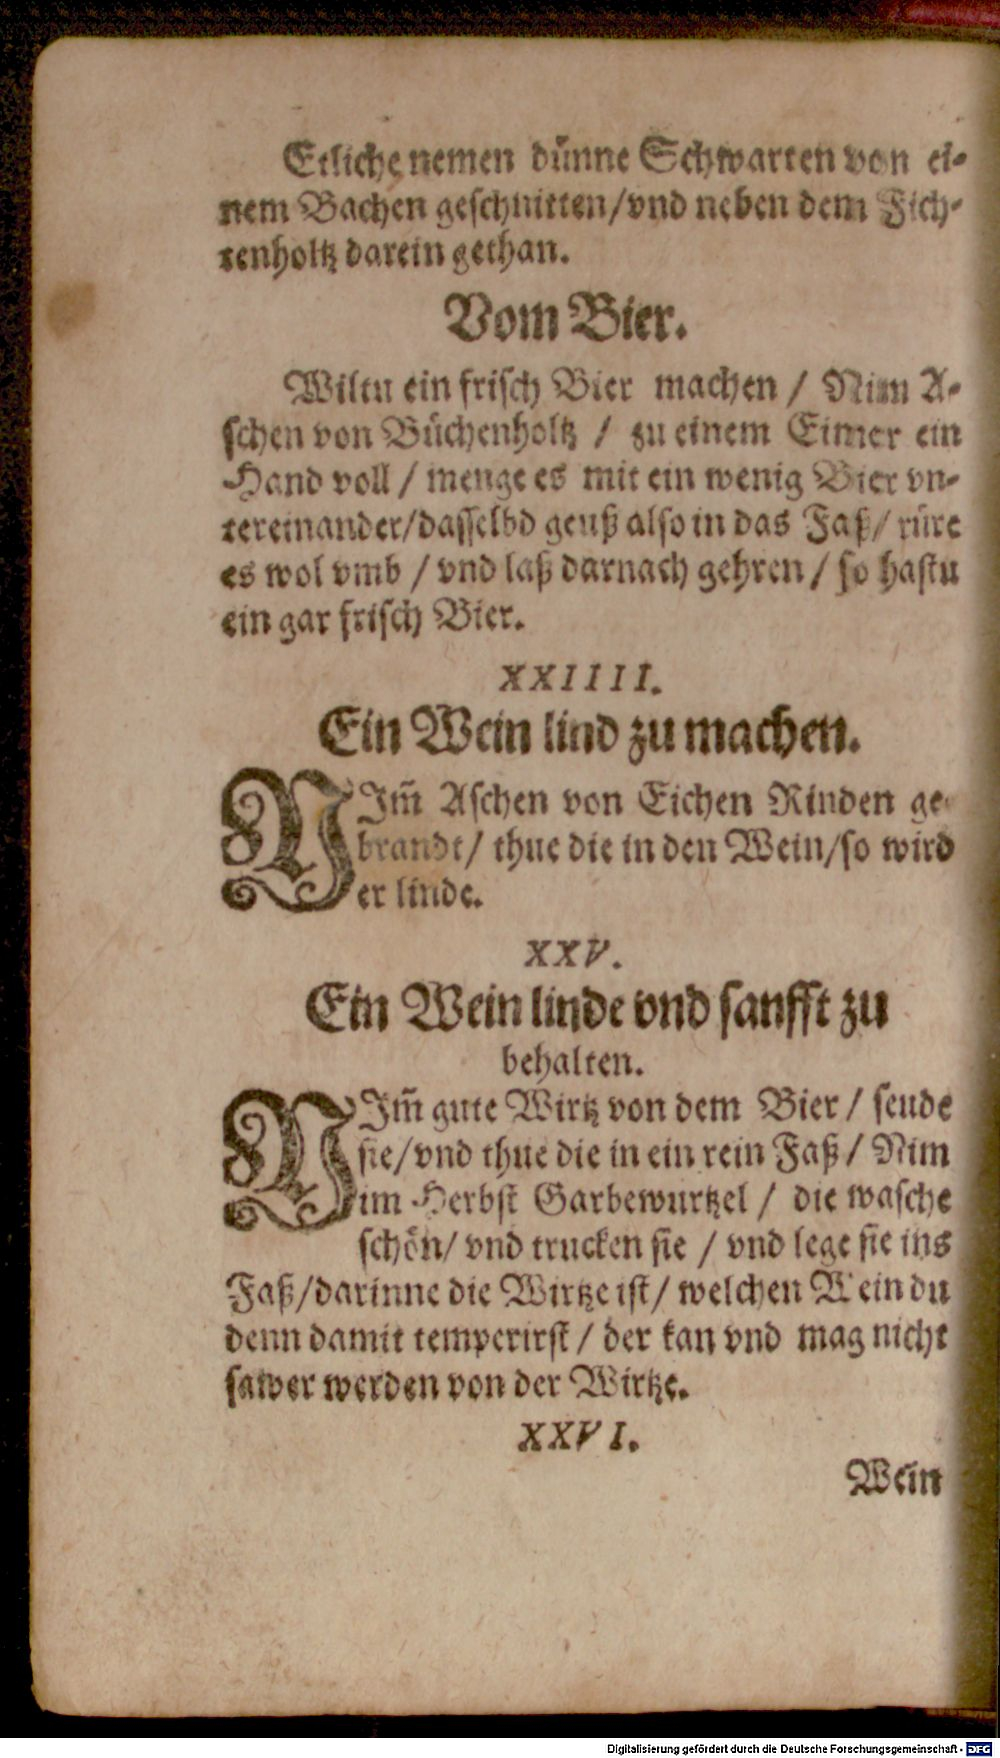 Etliche nemen dünne Schwarten von ei-
nem Bachen geschnitten/vnd neben dem Fich-
tenholtz darein gethan.
Vom Bier.
Wiltu ein frisch Bier machen / Nim A-
schen von Büchenholtz / zu einem Eimer ein
Hand voll / menge es mit ein wenig Bier vn-
tereinander/dasselbd geuß also in das Faß/ rüre
es wol vmb / vnd laß darnach gehren / so hastu
ein gar frisch Bier.
XXIIII.
Ein Wein lind zu machen.
NIm̃ Aschen von Eichen Rinden ge-
brandt/ thue die in den Wein/so wird
er linde.
XXV.
Ein Wein linde vnd sanfft zu
behalten.
NIm̃ gute Wirtz von dem Bier / seude
sie/vnd thue die in ein rein Faß / Nim
im Herbst Garbewurtzel / die wasche
schön/ vnd trucken sie / vnd lege sie ins
Faß/darinne die Wirtze ist/ welchen Wein du
denn damit temperirst / der kan vnd mag nicht
sawer werden von der Wirtze.
XXVI.
Wein
Digitalisierung gefördert durch die Deutsche Forschungsgemeinschaft - DFG